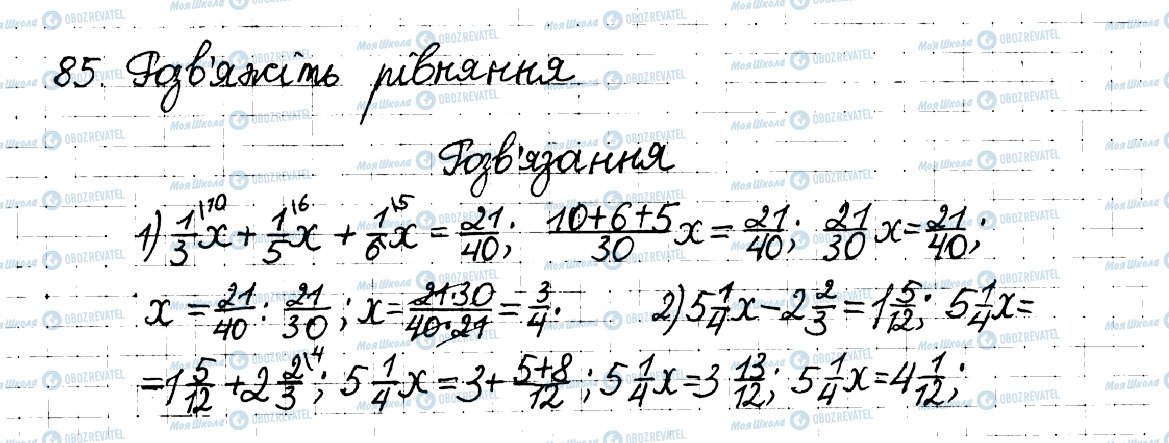 85. Розв'яжіть рівняння
Розв'язання
1) 1/3\10 x + 1/5\6 x + 1/6\5 x = 21/40; (10+6+5)/30 x = 21/40; 21/30 x = 21/40;
x = 21/40 : 21/30; x = (21·30)/(40·21) = 3/4. 2) 5 1/4 x − 2 2/3 = 1 5/12; 5 1/4 x =
= 1 5/12 + 2 2/3\4; 5 1/4 x = 3 + (5+8)/12; 5 1/4 x = 3 13/12; 5 1/4 x = 4 1/12;
Моя Школа OBOZREVATEL